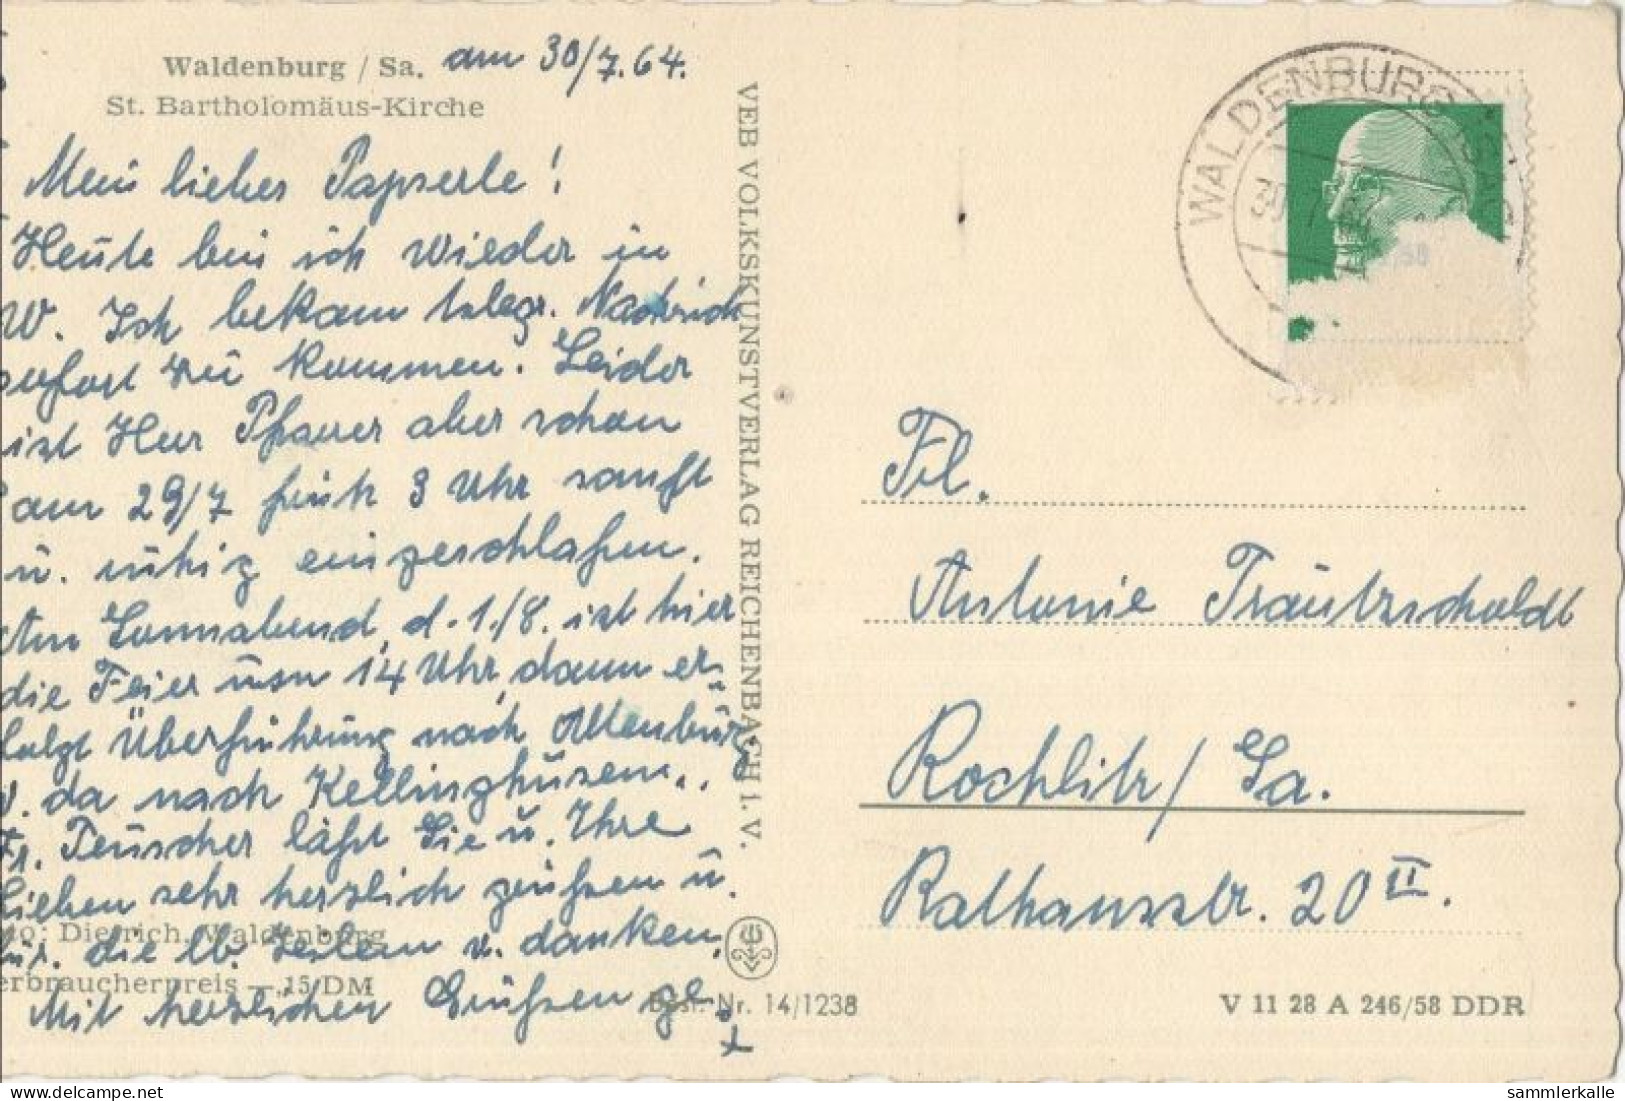 Waldenburg / Sa. am 30/7.64.
St. Bartholomäus-Kirche
Mein liebes Papserle!
Heute bin ich wieder in
W. Ich bekam telegr. Nachrich
sofort zu kommen. Leider
ist Herr Pfarrer aber schon
am 29/7 früh 3 Uhr sanft
u. ruhig eingeschlafen.
Am Sonnabend, d. 1./8. ist hier
die Feier usw 14 Uhr, dann er-
folgt Überführung nach Altenburg
v. da nach Kellinghusen.
Fr. Teuscher läßt Sie u. Ihre
Lieben sehr herzlich grüßen u.
Foto: Dietrich, Waldenburg
für die lb. Zeilen danken.
erbraucherpreis -,15 DM
Mit herzlichen Grüßen
Best.-Nr. 14/1238
VEB VOLKSKUNSTVERLAG REICHENBACH I. V.
WALDENBURG
30
Frl.
Antonie Trautzscholdt
Rochlitz / Sa.
Rathausstr. 20 II.
V 11 28 A 246/58 DDR
delcampe.net
sammlerkalle